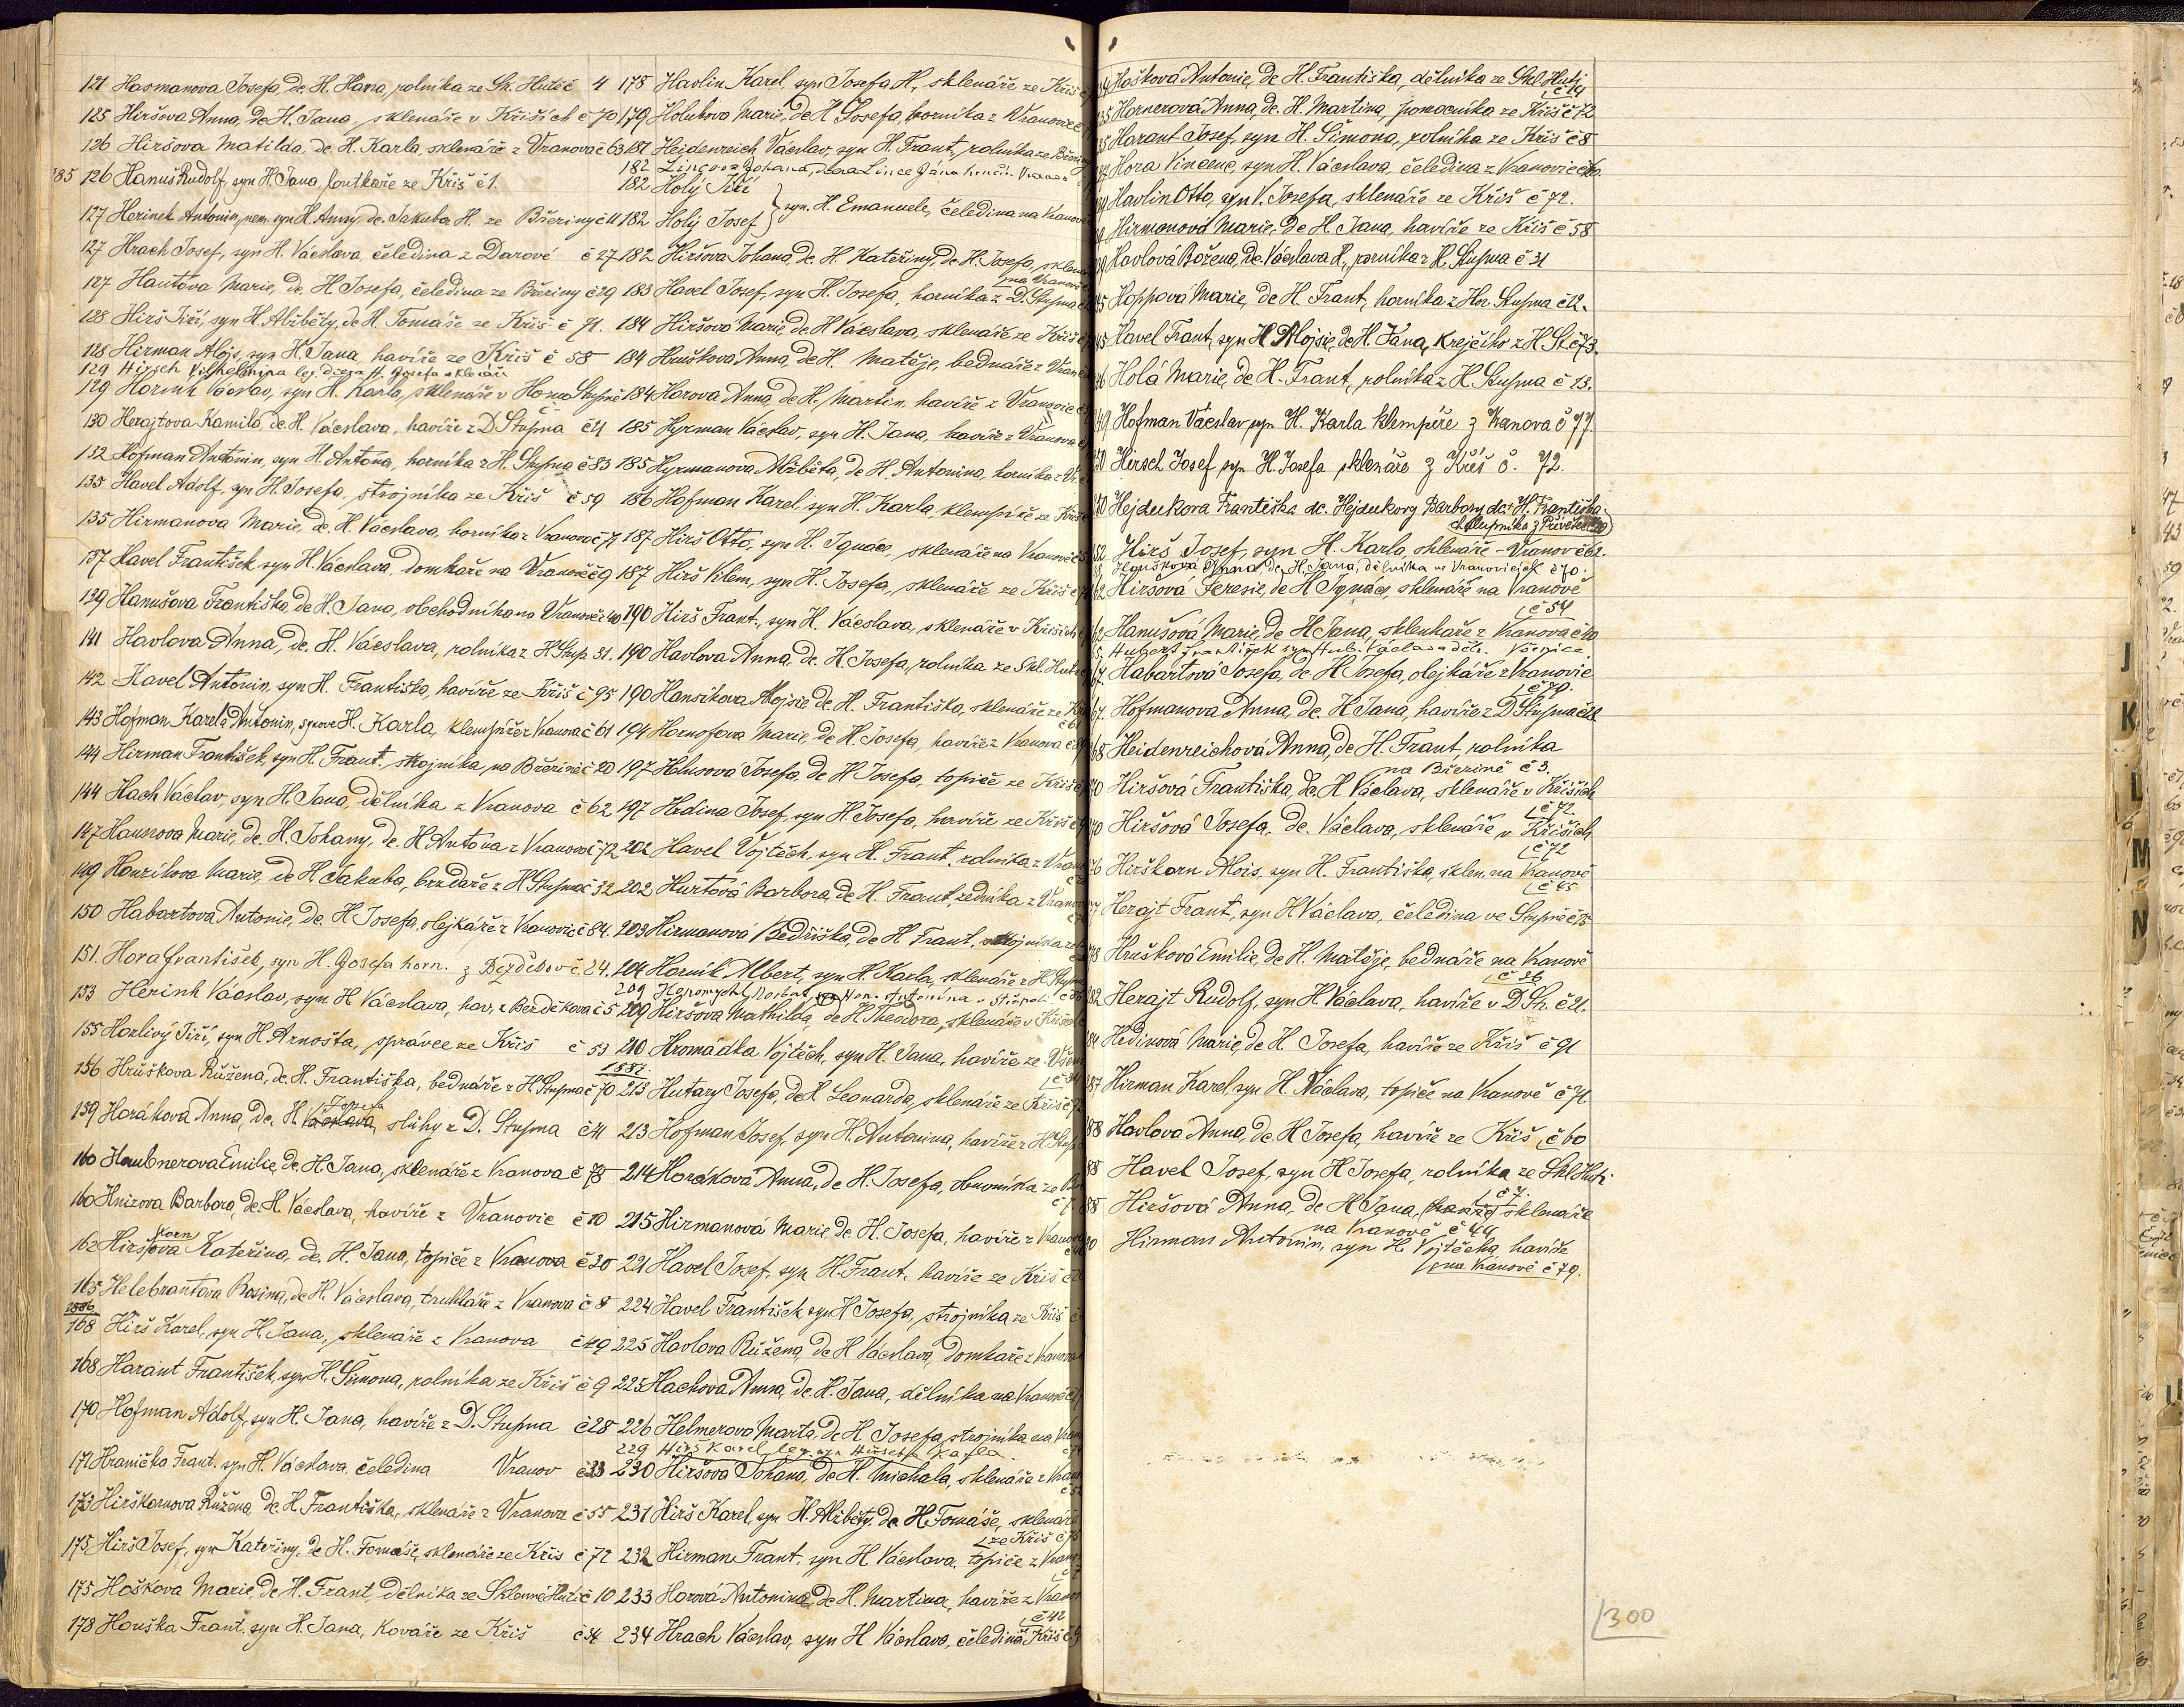 121 Hasmanova Josefa, dc. H. Hana, rolníka ze Sk. Hutě č 4
125 Hiršova Anna, dc. H. Jana, sklenáře v Křiších č 70
126 Hiršova Matilda, dc. H. Karla, sklenáře z Vranova č 63
126 Hanuš Rudolf, syn H. Jana, foutkaře ze Kříš č 1.
127 Herinek Antonín, nem. syn H. Anny, dc. Jakuba H. ze Březiny č 11
127 Hrach Josef, syn H. Václava, čeledína z Darové č 27
127 Hautova Marie, dc. H. Josefa, čeledína ze Březiny č 29
128 Hirš Jiří, syn H. Alžběty, dc. H. Tomáše ze Kříš č 71.
128 Hirman Alojs, syn H. Jana, havíře ze Kříš č 58
129 Hirsch Vilhelmina leg. dcera H. Josefa sklenáře
129 Horník Václav, syn H. Karla, sklenáře v Horno Stupně
130 Herajtova Kamila, dc. H. Václava, havíře z D. Stupna č 21
132 Hofman Antonín, syn H. Antona, horníka z H. Stupna č 83
135 Havel Adolf, syn H. Josefa, strojníka ze Kříš č 59
135 Hirmanova Marie, dc. H. Václava, horníka z Vranova č 71
137 Havel František, syn H. Václava, domkaře na Vranově č 9
139 Hanušova Františka, dc. H. Jana, obchodníka na Vranově č 40
141 Havlova Anna, dc. H. Václava, rolníka z H. Stup. 31.
142 Havel Antonín, syn H. Františka, havíře ze Kříš č 95
143 Hofman Karel a Antonín, synové H. Karla, klempíře z Vranova č 61
144 Hirman František, syn H. Frant. strojníka, na Březině č 20
144 Hach Václav, syn H. Jana, dělníka z Vranova č 62
147 Hausnova Marie, dc. H. Johany, dc. H. Antona z Vranova č 72
149 Honzíkova Marie, dc. H. Jakuba, brzdaře z H. Stupna č 32
150 Habartova Antonie, dc. H. Josefa, olejkáře z Vranovic č 84.
151. Hora František, syn H. Josefa horn. z Bezděkov č. 24.
153 Herink Václav, syn H. Václava, hav. z Bezděkova č 5
155 Horlivý Jiří, syn H. Arnošta, správce ze Kříš č 53
156 Hrůškova Růžena, dc. H. Františka, bednáře z H. Stupna č 70
159 Horákova Anna, dc. H. Josefa sluhy z D. Stupna č 41
160 Haubnerova Emilie, dc. H. Jana, sklenáře z Vranova č 78
160 Hnizova Barbora, dc. H. Václava, havíře z Vranovic č 10
162 Hirškornova Kateřina, dc. H. Jana, topiče z Vranova č 30
165 Helebrantova Rosina, dc. H. Václava, truhláře z Vranova č 8
1886
168 Hirš Karel, syn H. Jana, sklenáře z Vranova č 49
168 Harant František, syn H. Šimona, rolníka ze Kříš č 9
170 Hofman Adolf, syn H. Jana, havíře z D. Stupna č 28
171 Hranička Frant. syn H. Václava, čeledína Vranov č 33
173 Hirškornova Růžena, dc. H. Františka, sklenáře z Vranova č 55
175 Hirš Josef, syn Kateřiny, dc. H. Tomáše, sklenáře ze Kříš č 72
175 Hoškova Marie, dc. H. Frant. dělníka ze Sklenné Hutě č 10
178 Houška Frant. syn H. Jana, kováře ze Kříš č 34
178 Havlin Karel, syn Josefa H., sklenáře ze Kříš
179 Holubova Marie, dc. H. Josefa, horníka z Vranovic
181 Heidenreich Václav, syn H. Frant., rolníka ze Březiny
182 Lincova Johana, dcera Lince Jána
182 Holý Jiří
182 Holý Josef } syn. H. Emanuele, čeledína na Vranově
182 Hiršova Johana, dc. H. Kateřiny, dc. H. Josefa, sklenáře
na Vranově
183 Havel Josef, syn H. Josefa, horníka z D. Stupna
184 Hiršová Marie, dc. H. Václava, sklenáře ze Kříš
184 Hruškova Anna, dc. H. Matěje, bednáře z Vran
184 Horova Anna, dc. H. Martin, havíře z Vranovic
185 Hyrman Václav, syn H. Jana, havíře z Vranova
185 Hyrmanova Alžběta, dc. H. Antonína, horníka z Vr.
186 Hofman Karel, syn H. Karla, klempíře ze Kříš
187 Hirš Otto, syn H. Ignáce, sklenáře na Vranově
187 Hirš Vilem, syn H. Josefa, sklenáře ze Kříš
190 Hirš Frant., syn H. Václava, sklenáře v Kříších
190 Havlova Anna, dc. H. Josefa, rolníka ze Skl. Hutě
190 Hansíkova Alojsie, dc. H. Františka, sklenáře ze Kř
194 Hornofova Marie, dc. H. Josefa, havíře z Vranova
197 Holusová Josefa, dc. H. Josefa, topiče ze Kříš
197 Hedina Josef, syn H. Josefa, havíře ze Kříš
202 Havel Vojtěch, syn H. Frant. rolníka z Vran
202 Hurtová Barbora, dc. H. Frant. zedníka z Vranov
203 Hirmanová Bedřiška, dc. H. Frant. strojníka ze
204 Horník Albert, syn H. Karla, sklenáře z H. Stupna
209 Hiršova Mathilda, dc. H. Theodora, sklenáře v Kříších
210 Hromádka Vojtěch, syn H. Jana, havíře ze Všen
1887.
213 Hutary Josefa, dc. H. Leonarda, sklenáře ze Kříš
213 Hofman Josef, syn H. Antonína, havíře z H. Stup
214 Horáková Anna, dc. H. Josefa, obuvníka ze
215 Hirmanová Marie, dc. H. Josefa, havíře z Vranov
221 Havel Josef, syn H. Frant. havíře ze Kříš
224 Havel František, syn H. Josefa, strojníka ze Kříš
225 Havlova Růžena, dc. H. Václava, domkaře z Vranova
225 Hachová Anna, dc. H. Jana, dělníka na Vranově
226 Helmerová Marta, dc. H. Josefa, strojníka na Vran
229 Hirš Karel, leg. syn Hirše Karla.
230 Hiršova Johana, dc. H. Michala, sklenáře z Vran
231 Hirš Karel, syn H. Alžběty, dc. H. Tomáše, sklenáře
ze Kříš č 75
232 Hirman Frant. syn H. Václava, topiče z Vran
233 Horová Antonína, dc. H. Martina, havíře z Vranov
č 42
234 Hrach Václav, syn H. Václava, čeledína Kříš
Hašková Antonie, dc. H. Františka, dělníka ze Skl. Hutě
č 14
Hornerová Anna, dc. H. Martina, pomocníka ze Kříš č 72
Harant Josef, syn H. Šimona, rolníka ze Kříš č 8
Hora Vincenc, syn H. Václava, čeledína z Vranovic
Havlin Otto, syn V. Josefa, sklenáře ze Kříš č 72.
Hirmanová Marie, dc. H. Jana, havíře ze Kříš č 58
Havlová Božena, dc. Václava H., rolníka z H. Stupna č 31
Hoppová Marie, dc. H. Frant., horníka z Hor. Stupna č 12.
Havel Frant. syn H. Alojsie, dc. H. Jana, krejčího z H. St. č 73.
Holá Marie, dc. H. Frant., rolníka z H. Stupna č 13.
Hofman Václav, syn H. Karla klempíře z Vranova č 77.
Hirsch Josef, syn H. Josefa sklenáře z Kříš č. 72.
Hejdukova Františka dc. Hejdukovy Barbory dc. H. Františka
chalupníka z Přívětic
Hirš Josef, syn H. Karla, sklenáře - Vranov č 62.
Houškova Anna dc. H. Jana, dělníka ve Vranovicích č 70.
Hiršová Teresie, dc. H. Ignáce, sklenáře na Vranově
č 54
Hanušová Marie, dc. H. Jana, sklenkaře z Vranova
Hubert František syn Hub. Václava děl. Vosnice.
Habartová Josefa, dc. H. Josefa, olejkáře z Vranovic
č 70.
Hofmanova Anna, dc. H. Jana, havíře z D. Stupna
Heidenreichová Anna, dc. H. Frant. rolníka
na Březině č 3.
Hiršová Františka, dc. H. Václava, sklenáře v Kříších
č 72
Hiršová Josefa, dc. Václava, sklenáře v Kříších
č 72
Hirškorn Alois, syn H. Františka, sklen. na Vranově
č 45
Herajt Frant., syn H. Václava, čeledína ve Stupně
Hrušková Emilie, dc. H. Matěje, bednáře na Vranově
č 26
Herajt Rudolf, syn H. Václava, havíře v D. St. č 21.
Hedinová Marie, dc. H. Josefa, havíře ze Kříš č 91
Hirman Karel, syn H. Václava, topiče na Vranově č 71
Havlova Anna, dc. H. Josefa, havíře ze Kříš č 60
Havel Josef, syn H. Josefa, rolníka ze Skl. Huti
č 7.
Hiršová Anna, dc. H. Jana, sklenáře
na Vranově č 44
Hirman Antonín, syn H. Vojtěcha, havíře
na Vranově č 79.
300
J
K
L
M
N